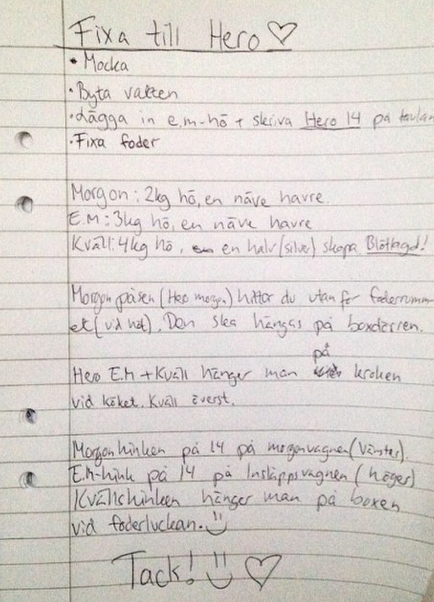 Fixa till Hero ♡
• Mocka
• Byta vatten
• Lägga in e.m-hö + skriva Hero 14 på tavlan
• Fixa foder
Morgon: 2kg hö, en näve havre.
E.M: 3kg hö, en näve havre
Kväll: 4kg hö, en halv (silver) skopa. Blötlagd!
Morgonpåsen (Hero morgon) hittar du utanför foderrumm
et (vid höt). Den ska hängas på boxdörren.
Hero E.M + Kväll hänger man på kroken
vid köket. Kväll överst.
Morgonhinken på 14 på morgonvagnen (Vänster).
E.M-hink på 14 på Insläppsvagnen (höger)
Kvällshinken hänger man på boxen
vid foderluckan. :)
Tack! :) ♡